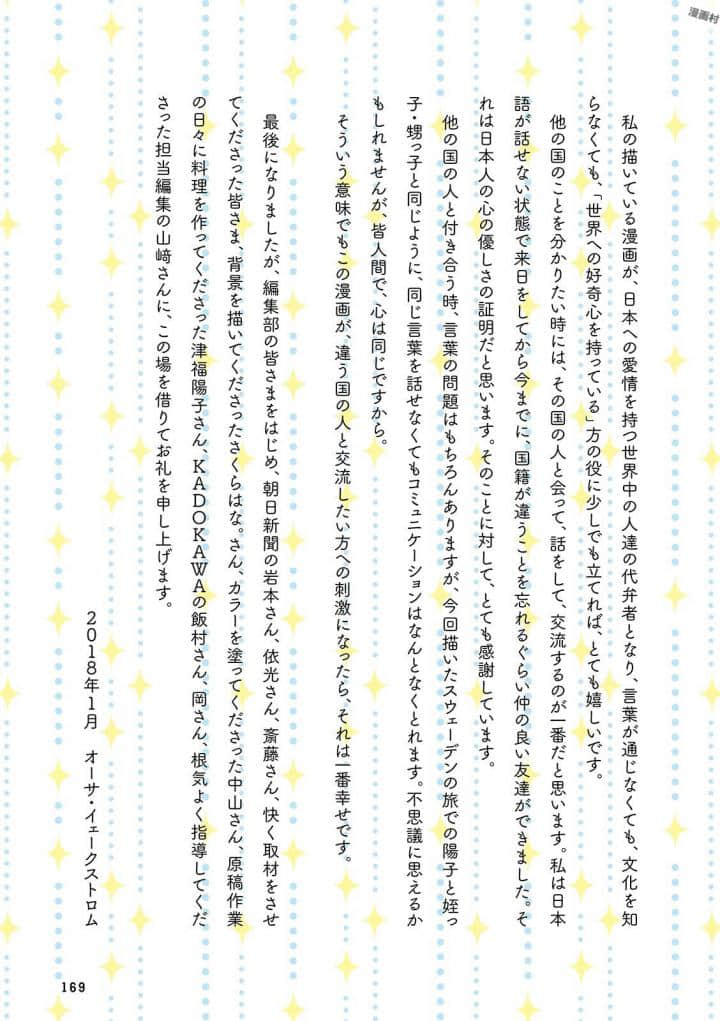 漫画村
私の描いている漫画が、日本への愛情を持つ世界中の人達の代弁者となり、言葉が通じなくても、文化を知
らなくても、「世界への好奇心を持っている」方の役に少しでも立てれば、とても嬉しいです。
他の国のことを分かりたい時には、その国の人と会って、話をして、交流するのが一番だと思います。私は日本
語が話せない状態で来日をしてから今までに、国籍が違うことを忘れるぐらい仲の良い友達ができました。そ
れは日本人の心の優しさの証明だと思います。そのことに対して、とても感謝しています。
他の国の人と付き合う時、言葉の問題はもちろんありますが、今回描いたスウェーデンの旅での陽子と姪っ
子・甥っ子と同じように、同じ言葉を話せなくてもコミュニケーションはなんとなくとれます。不思議に思えるか
もしれませんが、皆人間で、心は同じですから。
そういう意味でもこの漫画が、違う国の人と交流したい方への刺激になったら、それは一番幸せです。
最後になりましたが、編集部の皆さまをはじめ、朝日新聞の岩本さん、依光さん、斎藤さん、快く取材をさせ
てくださった皆さま、背景を描いてくださったさくらはな。さん、カラーを塗ってくださった中山さん、原稿作業
の日々に料理を作ってくださった津福陽子さん、KADOKAWAの飯村さん、岡さん、根気よく指導してくだ
さった担当編集の山﨑さんに、この場を借りてお礼を申し上げます。
2018年1月　オーサ・イェークストロム
169